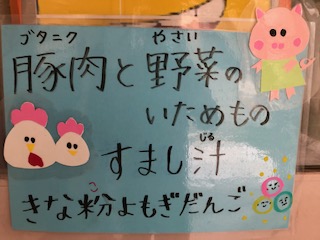 ブタニク やさい
豚肉と野菜の
いためもの
じる
すまし汁
こ
きな粉よもぎだんご